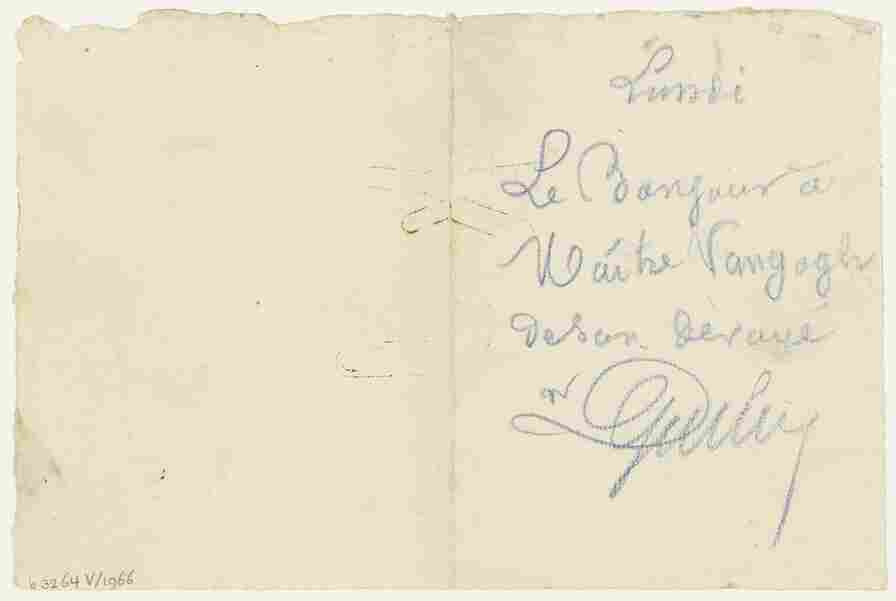 Lundi
Le Bonjour à
Maitre Vangogh
de son dévoué
b 3264 V/1966